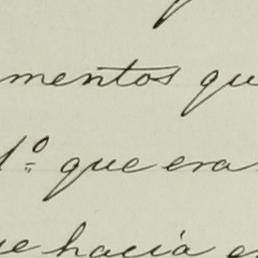 mentos qu
1º que era
ue hacia e